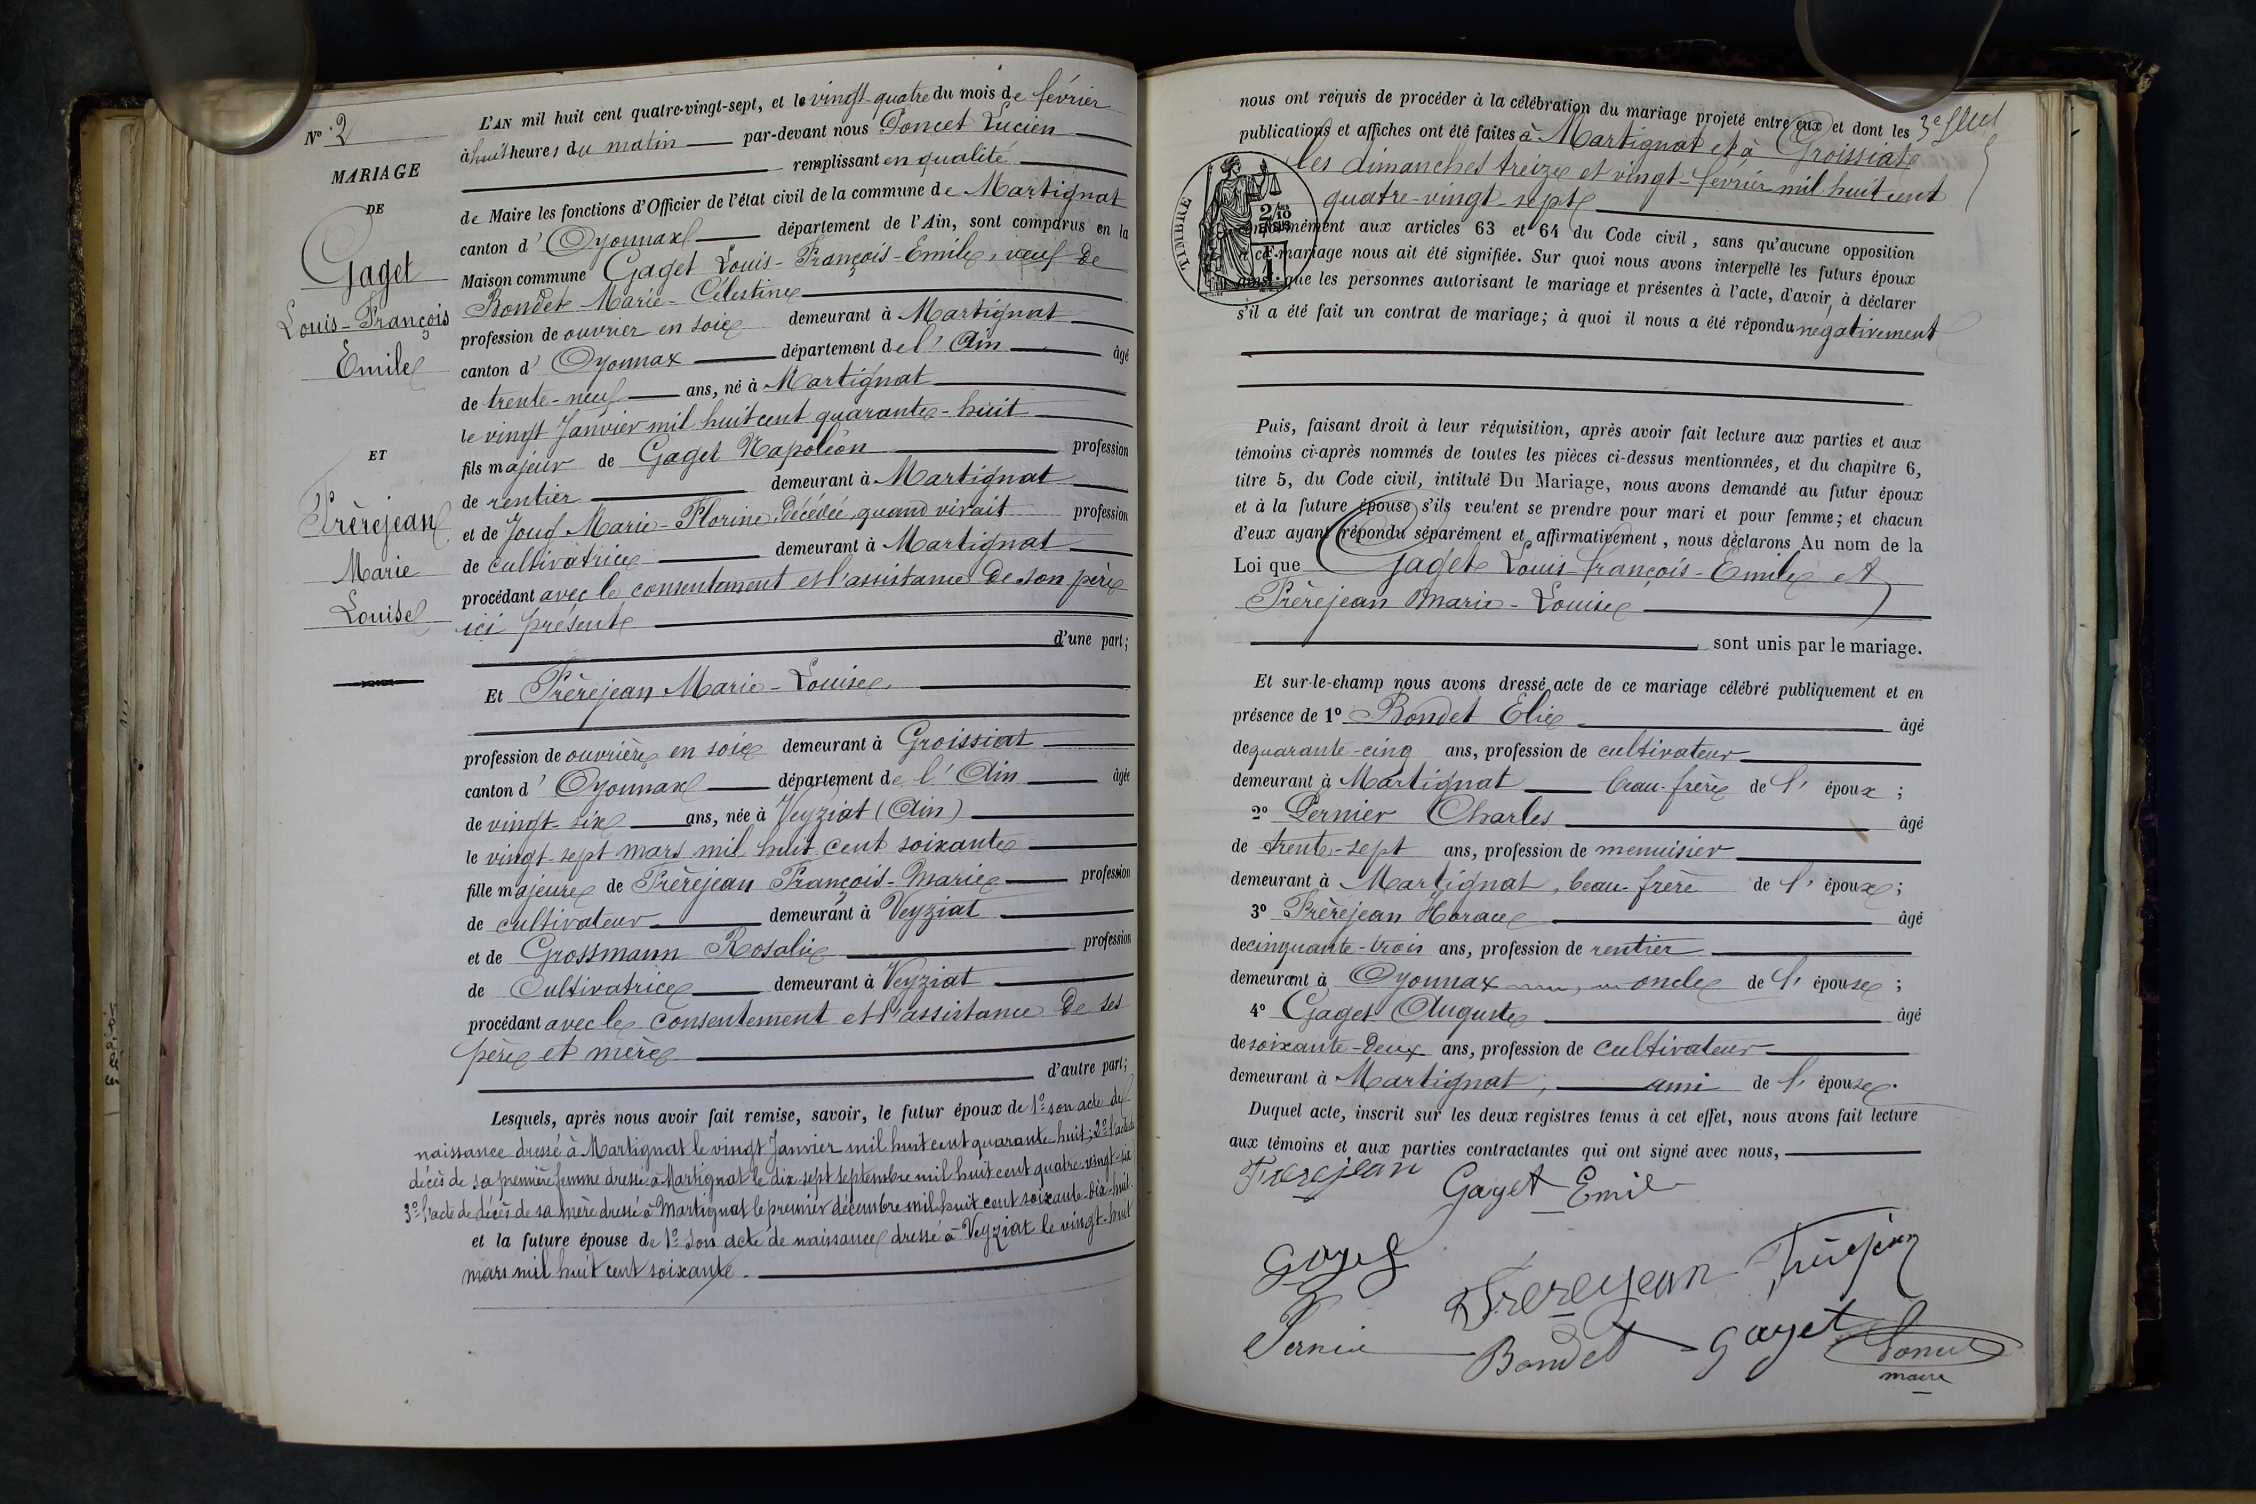 L'AN mil huit cent quatre-vingt-sept, et le vingt-quatre du mois de février
N° 2
à huit heures du matin par-devant nous Poncet Lucien
MARIAGE
remplissant en qualité
DE
de Maire les fonctions d'Officier de l'état civil de la commune de Martignat
Gaget
canton d'Oyonnax département de l'Ain, sont comparus en la
Maison commune Gaget Louis-François-Emile, veuf de
Louis-François
Bondet Marie-Célestine
profession de ouvrier en soie demeurant à Martignat
Emile
canton d'Oyonnax département de l'Ain âgé
de trente-neuf ans, né à Martignat
le vingt Janvier mil huit cent quarante-huit
ET
fils majeur de Gaget Napoléon profession
de rentier demeurant à Martignat
Frèrejean
et de Jouf Marie-Florine, décédée, quand vivait profession
de cultivatrice demeurant à Martignat
Marie
procédant avec le consentement et l'assistance de son père
Louise
ici présent
d'une part;
Et Frèrejean Marie-Louise,
profession de ouvrière en soie demeurant à Groissiat
canton d'Oyonnax département de l'Ain âgée
de vingt-six ans, née à Veyziat (Ain)
le vingt-sept mars mil huit cent soixante
fille majeure de Frèrejean François-Marie profession
de cultivateur demeurant à Veyziat
et de Grossmann Rosalie profession
de Cultivatrice demeurant à Veyziat
procédant avec le consentement et l'assistance de ses
père et mère
d'autre part;
Lesquels, après nous avoir fait remise, savoir, le futur époux de 1° son acte de
naissance dressé à Martignat le vingt Janvier mil huit cent quarante huit; 2° l'acte de
décès de sa première femme dressé à Martignat le dix sept septembre mil huit cent quatre-vingt-six
3° l'acte de décès de sa mère dressé à Martignat le premier décembre mil huit cent soixante-dix-huit.
et la future épouse de 1° son acte de naissance dressé à Veyziat le vingt-huit
mars mil huit cent soixante.
nous ont requis de procéder à la célébration du mariage projeté entre eux et dont les
publications et affiches ont été faites à Martignat et à Groissiat
les dimanches treize et vingt-février mil huit cent
quatre-vingt-sept
TIMBRE
conformément aux articles 63 et 64 du Code civil, sans qu'aucune opposition
à ce mariage nous ait été signifiée. Sur quoi nous avons interpellé les futurs époux
ainsi que les personnes autorisant le mariage et présentes à l'acte, d'avoir, à déclarer
s'il a été fait un contrat de mariage; à quoi il nous a été répondu negativement
Puis, faisant droit à leur réquisition, après avoir fait lecture aux parties et aux
témoins ci-après nommés de toutes les pièces ci-dessus mentionnées, et du chapitre 6,
titre 5, du Code civil, intitulé Du Mariage, nous avons demandé au futur époux
et à la future épouse s'ils veulent se prendre pour mari et pour femme; et chacun
d'eux ayant répondu séparément et affirmativement, nous déclarons Au nom de la
Loi que Gaget Louis François-Emile et
Frèrejean Marie-Louise
sont unis par le mariage.
Et sur-le-champ nous avons dressé acte de ce mariage célébré publiquement et en
présence de 1° Bondet Elie âgé
de quarante-cinq ans, profession de cultivateur
demeurant à Martignat beau-frère de l'époux;
2° Pernier Charles âgé
de trente-sept ans, profession de menuisier
demeurant à Martignat, beau-frère de l'époux;
3° Frèrejean Horace âgé
de cinquante-trois ans, profession de rentier
demeurant à Oyonnax oncle de l'épouse;
4° Gaget Auguste âgé
de soixante-deux ans, profession de cultivateur
demeurant à Martignat, ami de l'épouse.
Duquel acte, inscrit sur les deux registres tenus à cet effet, nous avons fait lecture
aux témoins et aux parties contractantes qui ont signé avec nous,
Frerejean Gaget Emile
Gaget Frerejean Frèrejean
Pernier Bondet Gaget Poncet
maire